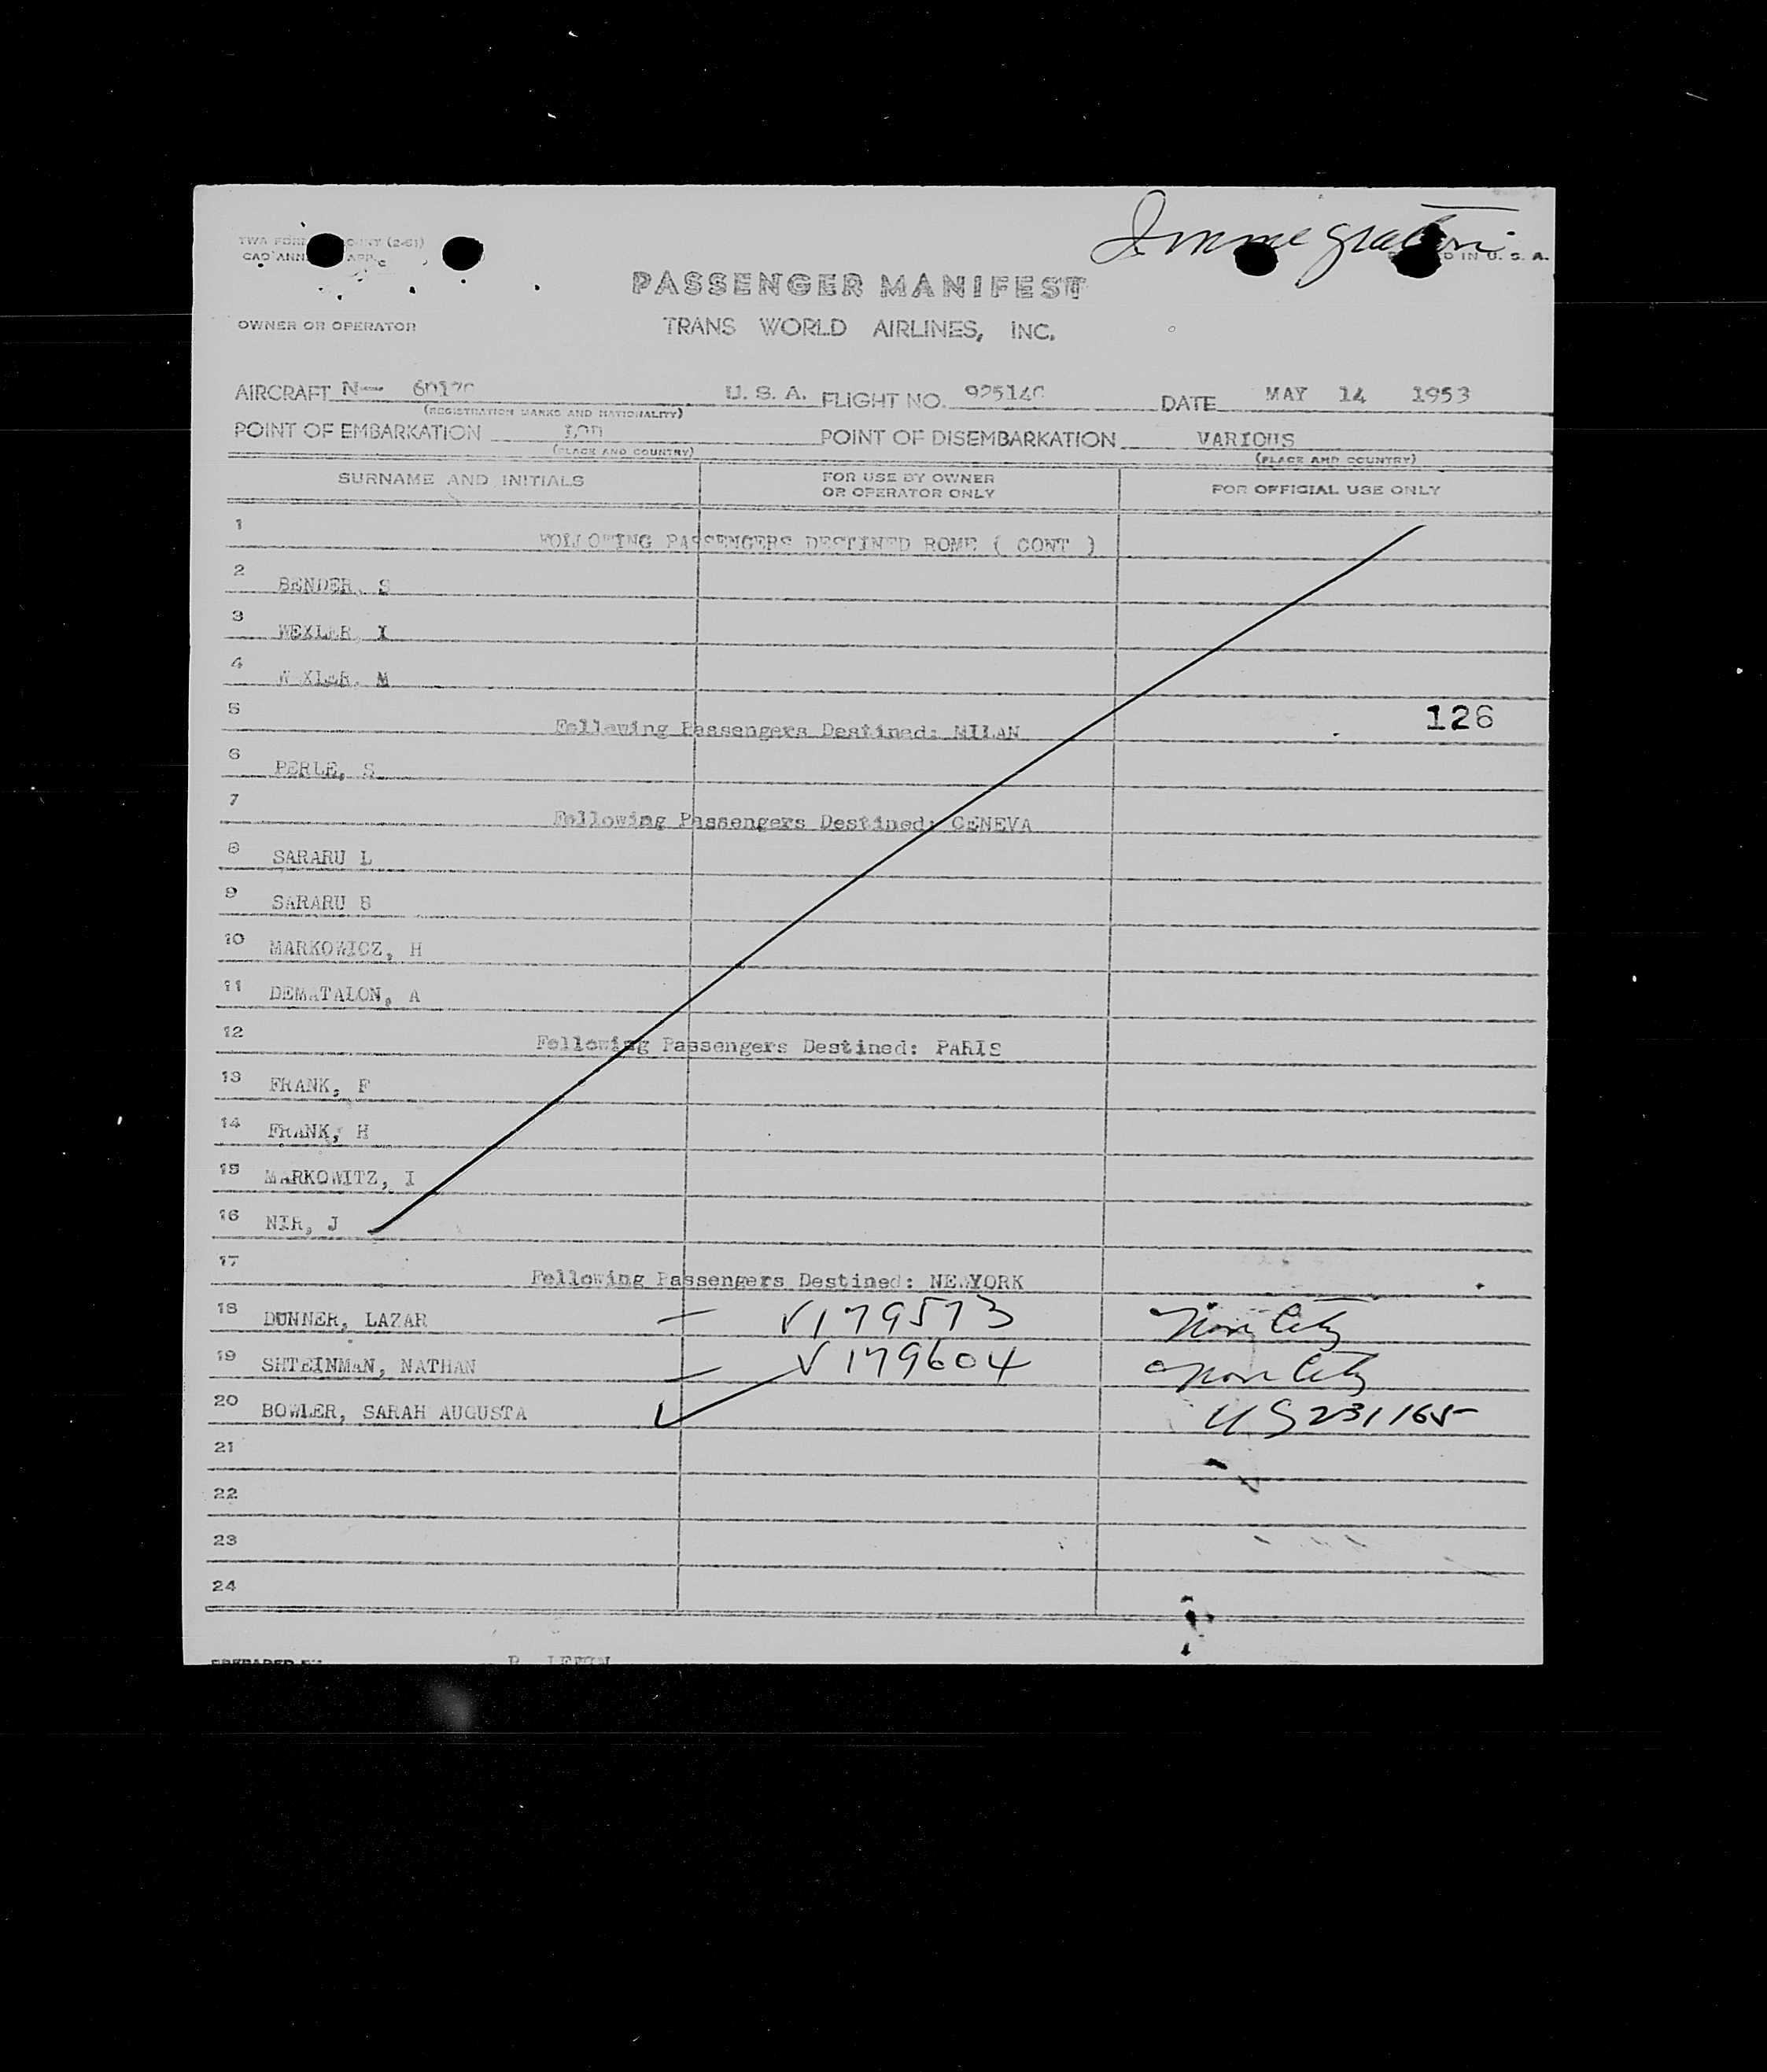 Immigration
TWA FORM
CAO ANN APP.
D IN U. S. A.
PASSENGER MANIFEST
OWNER OR OPERATOR
TRANS WORLD AIRLINES, INC.
AIRCRAFT N- 6017C U. S. A. FLIGHT NO. 92514C DATE MAY 14 1953
(REGISTRATION MARKS AND NATIONALITY)
POINT OF EMBARKATION LOD POINT OF DISEMBARKATION VARIOUS
(PLACE AND COUNTRY) (PLACE AND COUNTRY)
SURNAME AND INITIALS FOR USE BY OWNER OR OPERATOR ONLY FOR OFFICIAL USE ONLY
1 FOLLOWING PASSENGERS DESTINED ROME ( CONT )
2 BENDER, S
3 WEXLER, I
4 W XLER, M
5 Following Passengers Destined: MILAN 126
6 PERLE, S
7 Following Passengers Destined: GENEVA
8 SARARU L
9 SARARU S
10 MARKOWICZ, H
11 DEMATALON, A
12 Following Passengers Destined: PARIS
13 FRANK, F
14 FRANK, H
15 MARKOWITZ, I
16 NIR, J
17 Following Passengers Destined: NEWYORK
18 DUNNER, LAZAR — V179573
19 SHTEINMAN, NATHAN — V179604
20 BOWLER, SARAH AUGUSTA ✓ US 231165
21
22
23
24
PREPARED BY